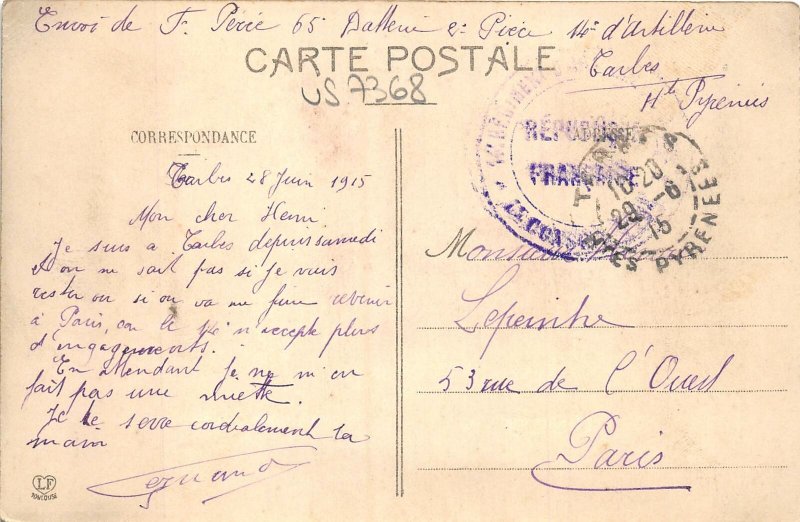 Envoi de F. Pérée 65 Batterie 2e Pièce 14e d'Artillerie
CARTE POSTALE
Tarbes
US 7368
Htes Pyrénées
CORRESPONDANCE
ADRESSE
RÉPUBLIQUE
FRANÇAISE
TARBES
16 20
29 -6
15
HTES PYRENEES
Tarbes 28 Juin 1915
Mon cher Henri
Je suis a Tarbes depuis samedi
et on ne sait pas si je vais
rester ou si on va me faire revenir
à Paris, car le 14e n'accepte plus
d'engagements.
En attendant je ne m'en
fait pas une miette.
Je te serre cordialement la
main
Fernand
Monsieur
Lepeintre
53 rue de l'Ouest
Paris
LF
TOULOUSE